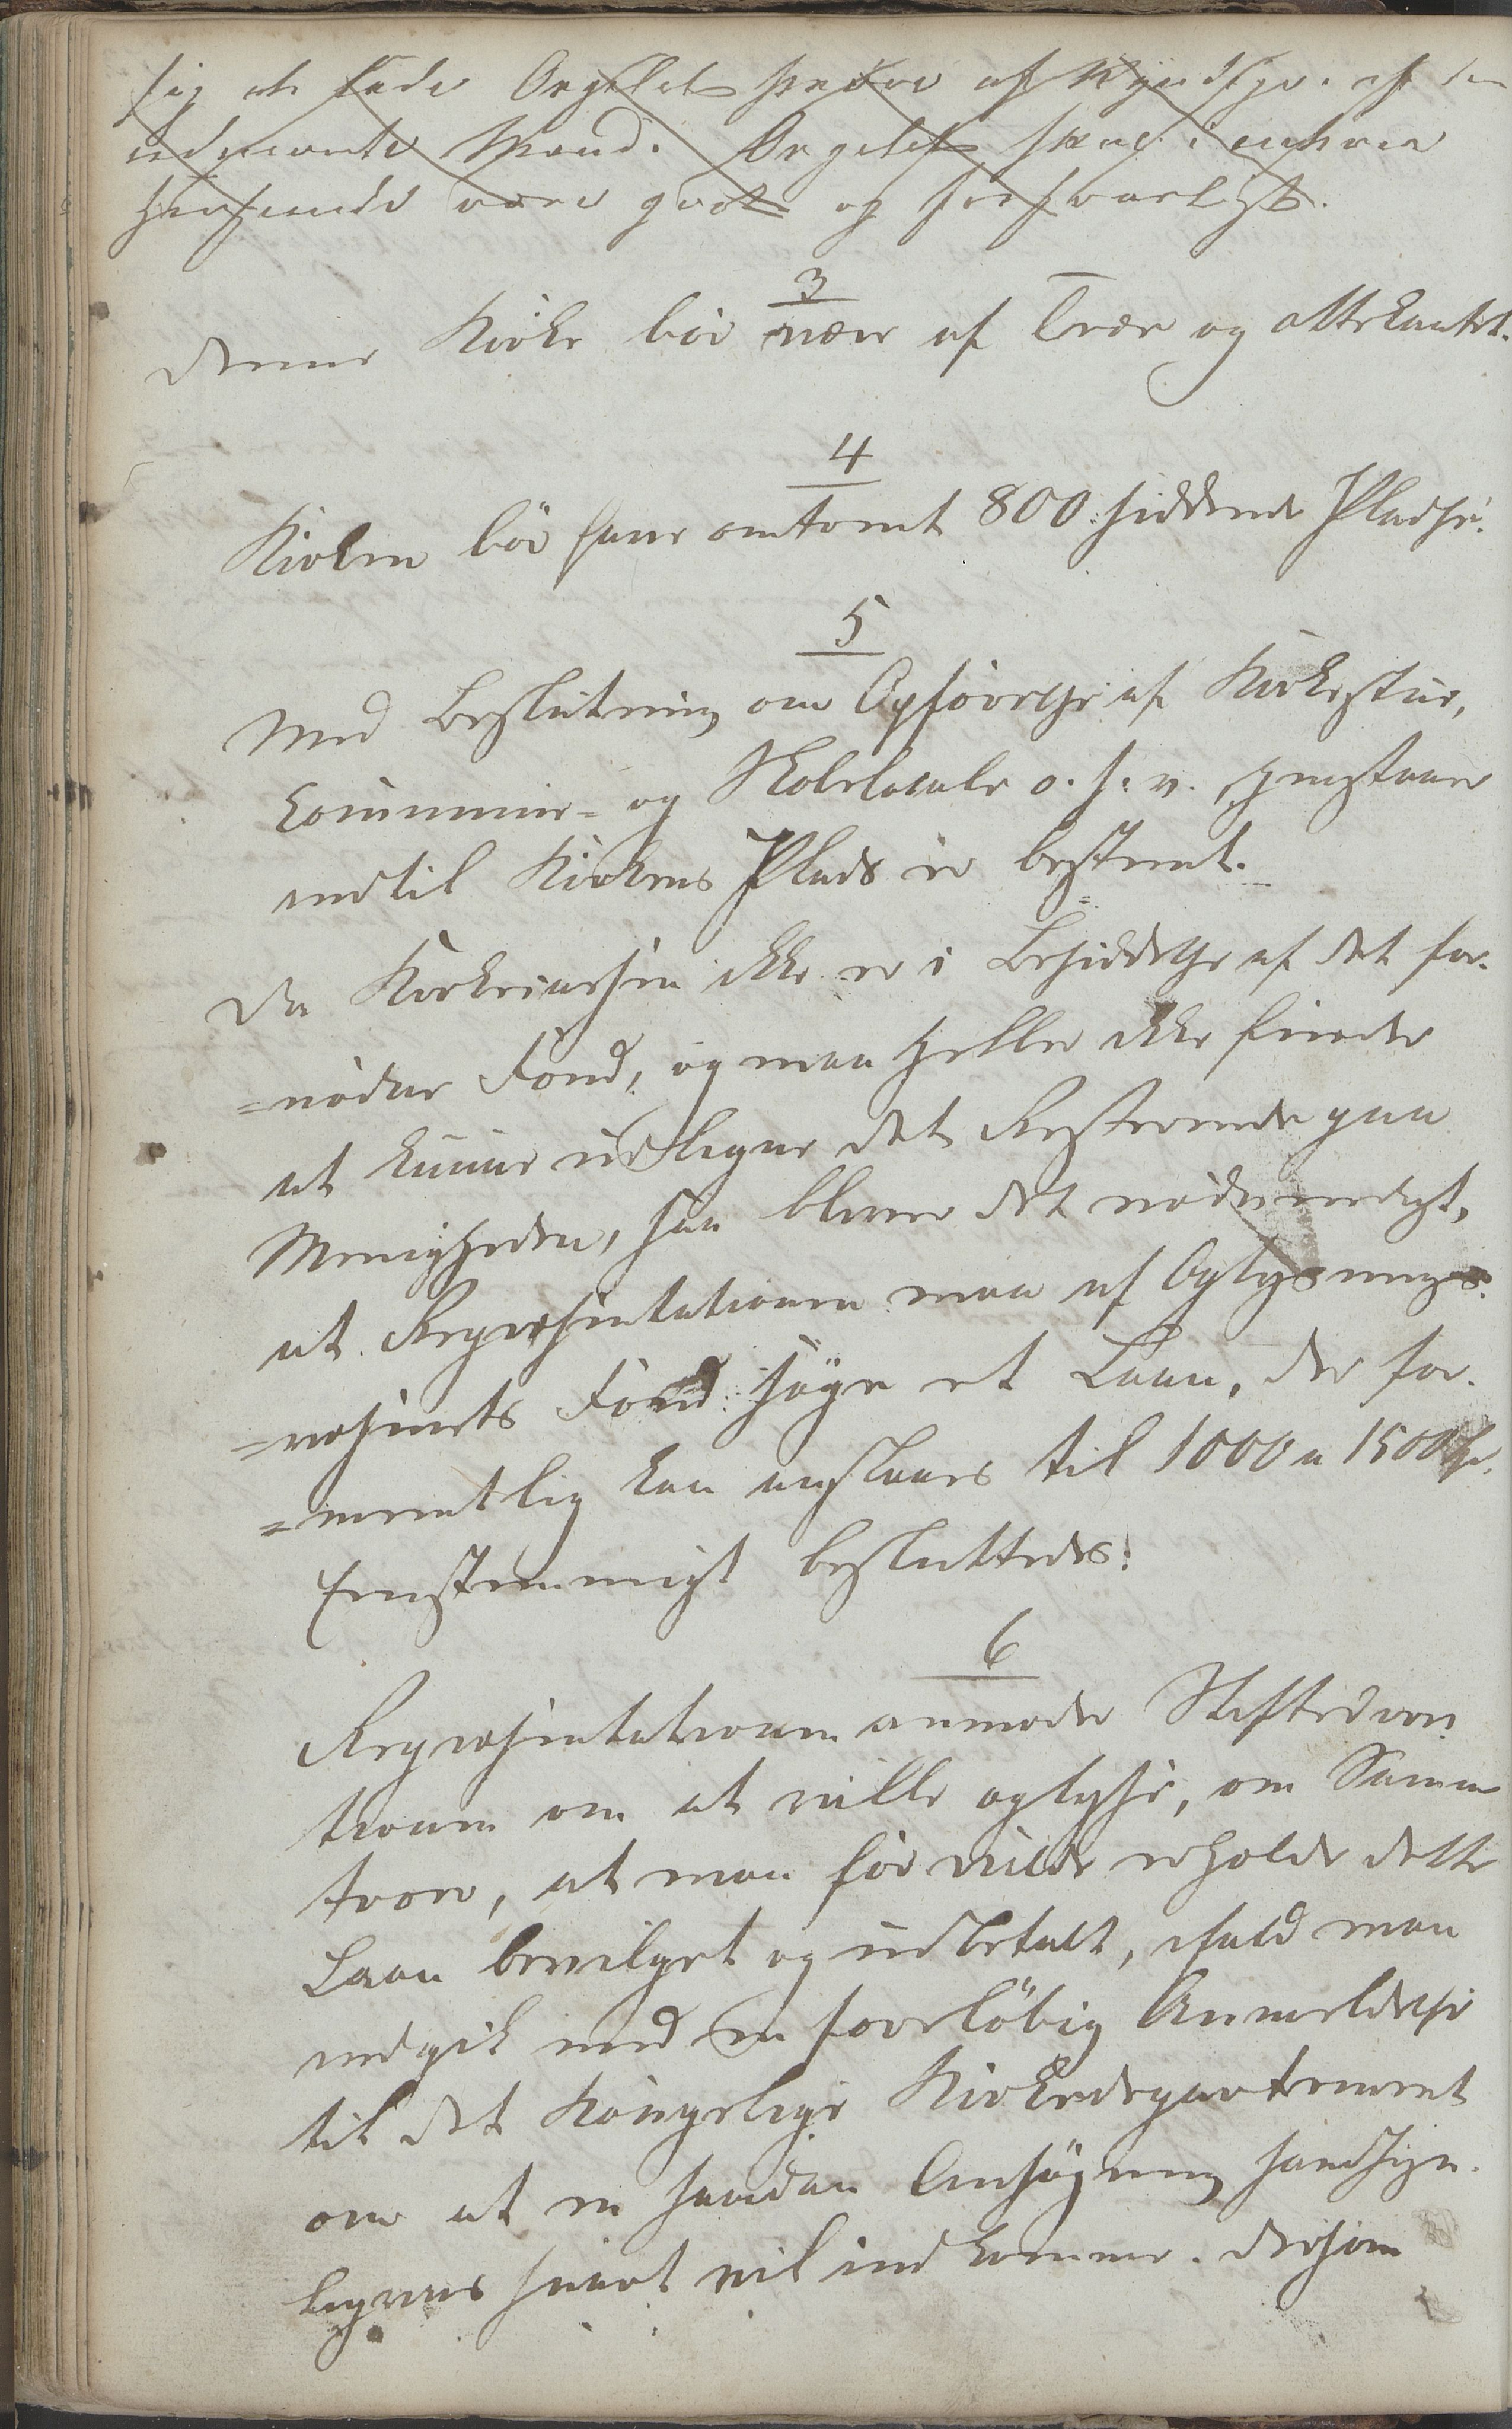 sig at lade Orgelet prøve af Kyndige. af den
udmærte Mand. Orgelet skal i enhver
Henseende være godt og forsvarligt.
3
Denne Kirke bör være af Træe og ottekantet.
4
Kirken bör have omtrent 800 siddende Pladse.
5
Med Beslutning om Opförelse af Kirkestue,
Commune- og Skolelocale o. s. v. henstaaer
indtil Kirkens Plads er bestemt.
Da Kirkecassen ikke er i Besiddelse af det for-
=nødne Fond, og man heller ikke finder
at kunne udligne det Resterende paa
Menigheden, saa bliver det nødvendigt,
at Repræsentationen maa af Oplysnings-
=væsenets Fond søge et Laan, der for-
=mentlig kan anslaaes til 1000 a 1500 Spd.
Eenstemmigt besluttedes:
6
Repræsentationen anmoder Stiftsdirec
tionen om at ville oplyse, om Samme
troer, at man før vilde erholde dette
Laan bevilget og udbetalt, ifald man
indgik med en foreløbig Anmeldelse
til det Kongelige Kirkedepartement
om at en saadan Ansøgning sandsyn-
ligviis snart vil indkomme. Dersom